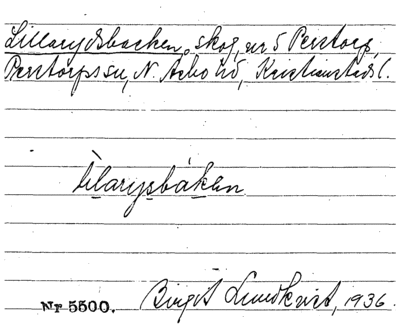 Lillarydsbacken, skog, nr 5 Perstorp,
Perstorps sn, N. Åsbo hd, Kristianstads l.
lìlarysbáken
Nr 5500. Birgit Lundkvist, 1936.